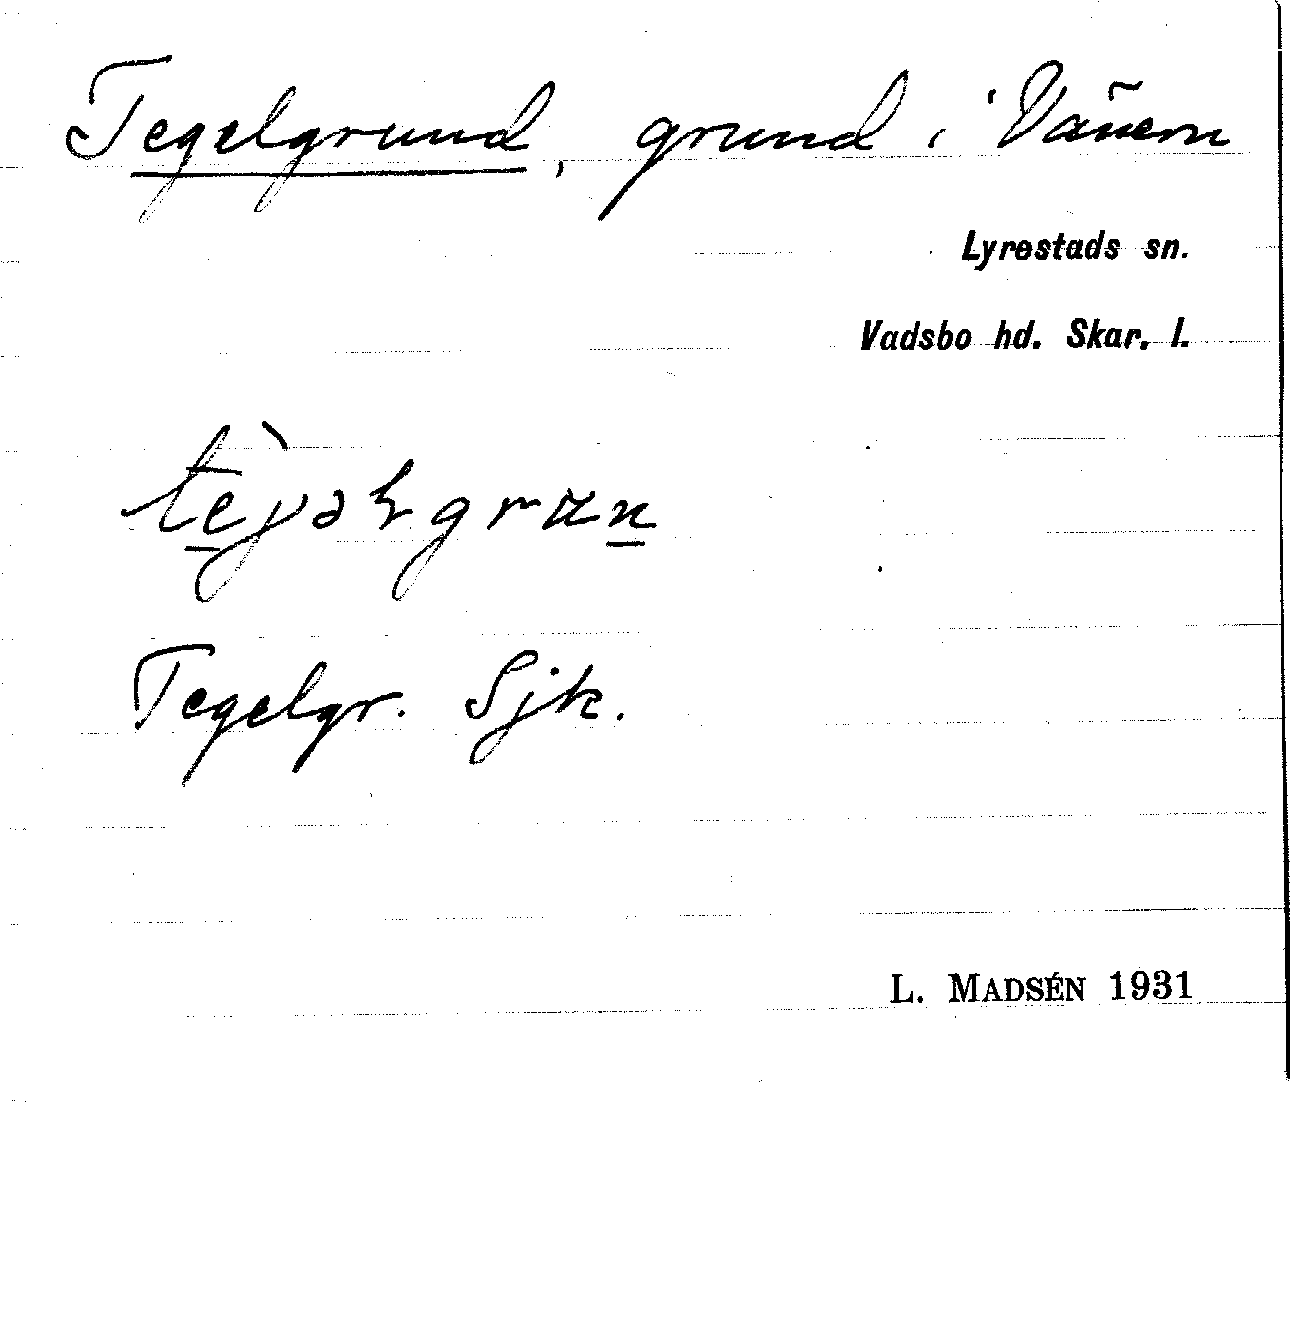 Tegelgrund, grund i Vänern
Lyrestads sn.
Vadsbo hd. Skar. l.
Tegelgr. Sjk.
L. MADSÉN 1931